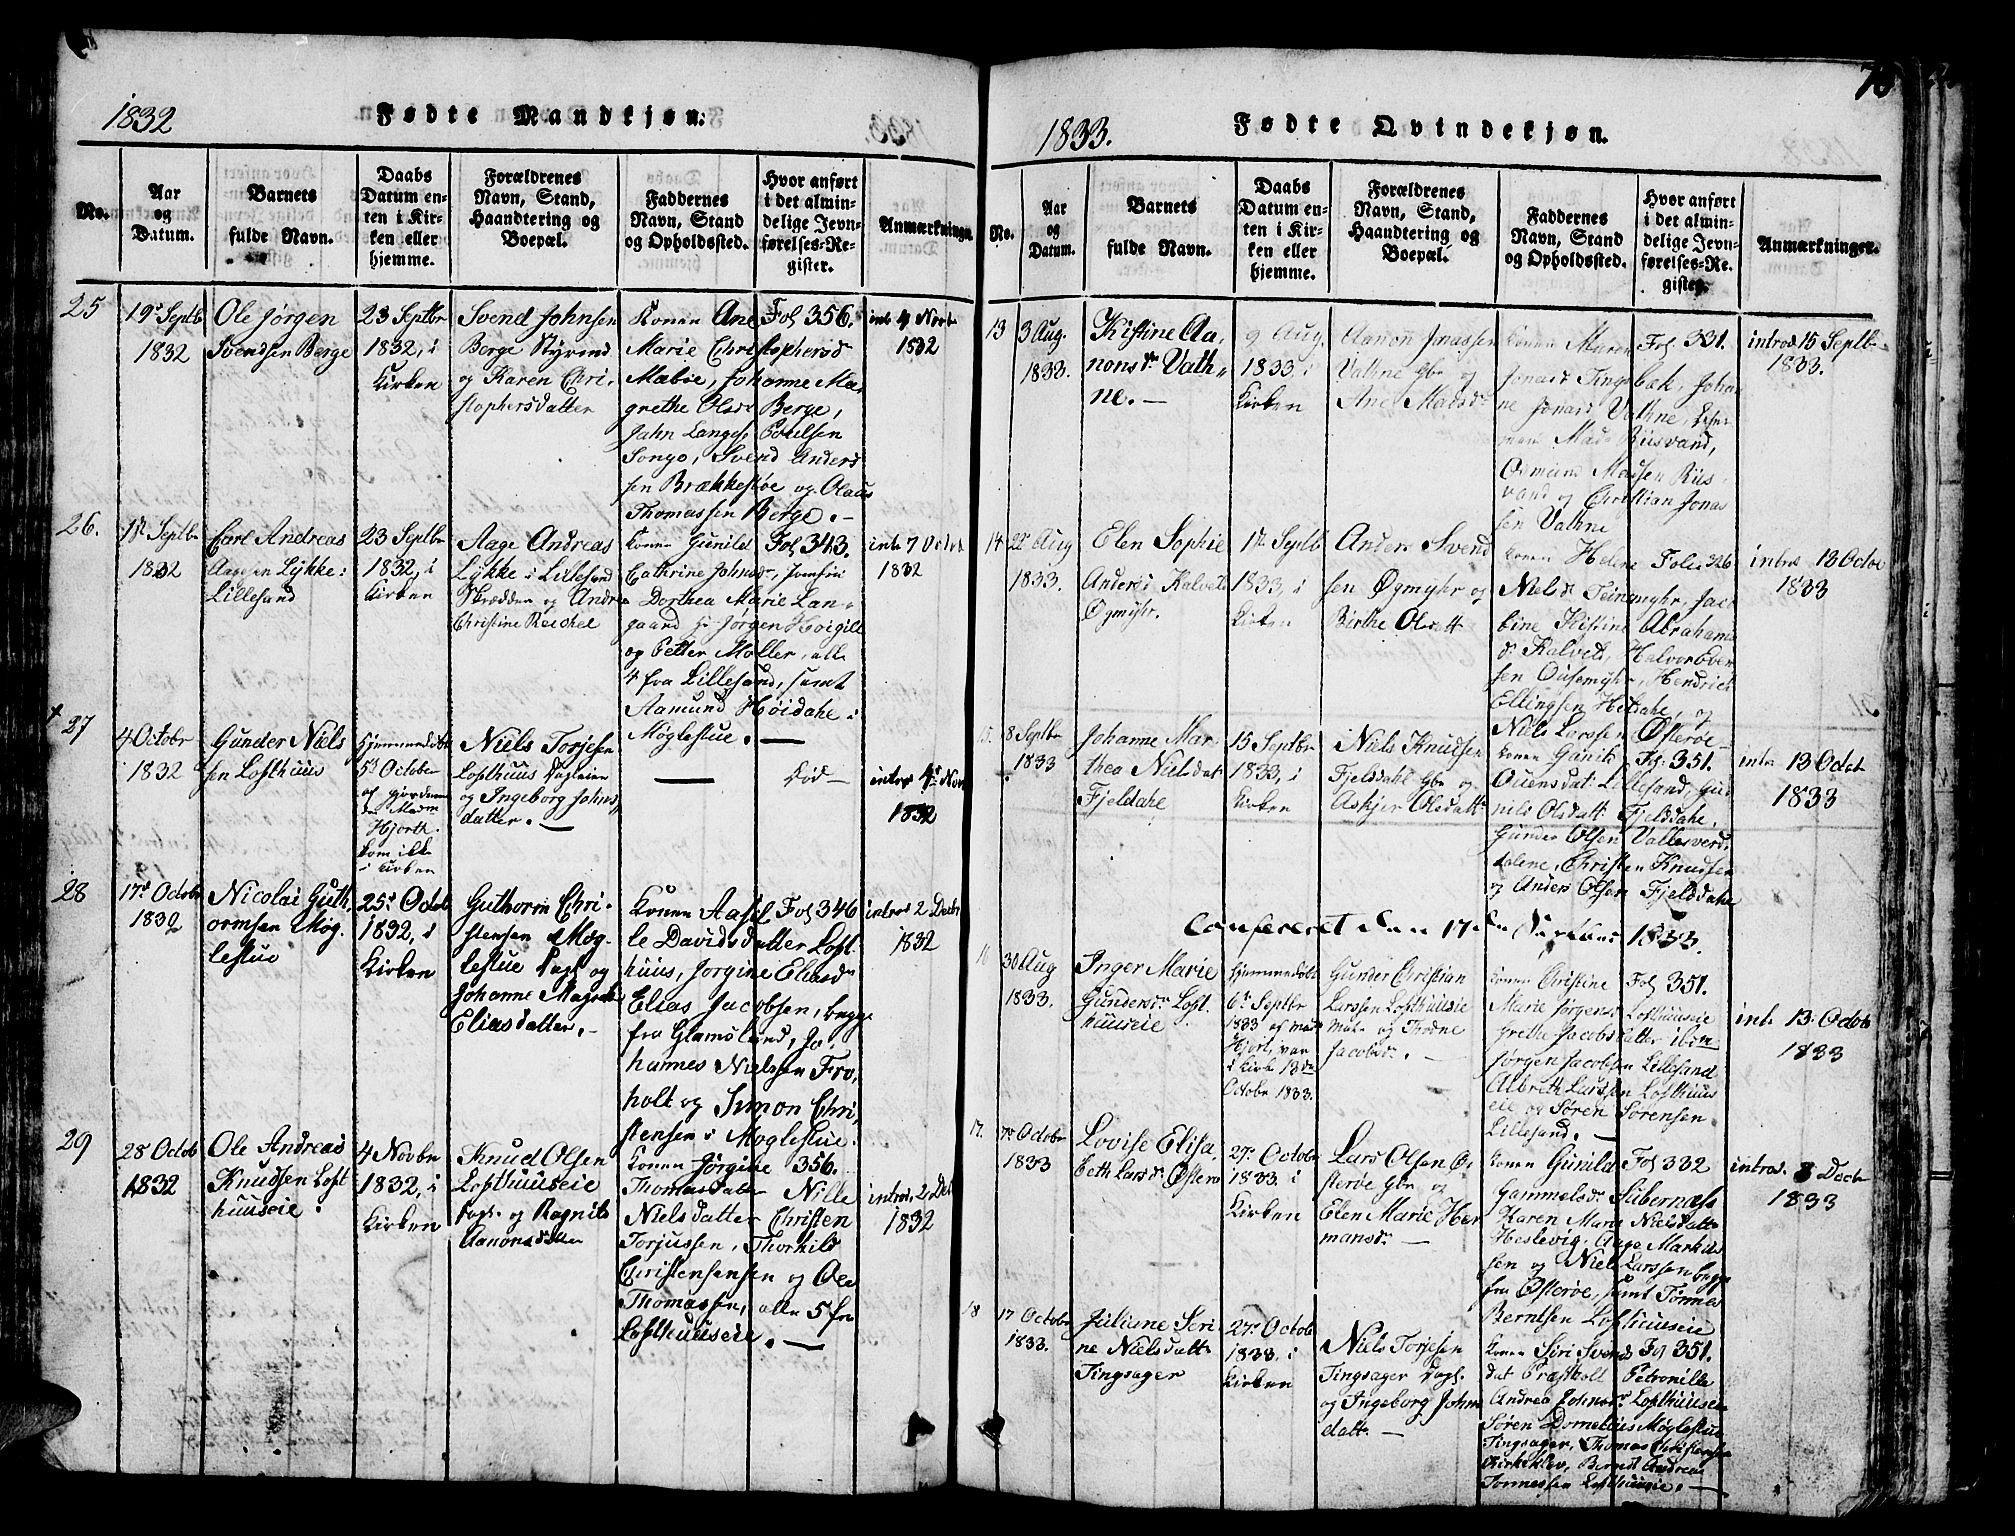 1832
Fødte Mandkjøn.
No.
Aar
og
Datum.
Barnets
fulde Navn.
Daabs
Datum en-
ten i Kir-
ken eller
hjemme.
Forældrenes
Navn, Stand,
Haandtering og
Boepæl.
Faddernes
Navn, Stand
og Opholdssted.
Hvor anført
i det almin-
delige Jevn-
førelses-Re-
gister.
Anmærkninger.
25
19de Septb
1832
Ole Jørgen
Svendsen Berge
23 Septbr
1832, i
Kirken
Svend Johnsen
Berge
og Karen Chri-
stophersdatter
Konen Ane
Marie Christophersd
Mæbøe, Johanne Ma-
grethe Olsdr Berge,
Jahn Langes. Povelsen
Songo, Svend Anders
sen Brækkestøe og Olaus
Thomassen Berge.
Fol 356.
int 4 Novbr
1832
26.
Septbr
1832
Carl Andreas
Aagesen Lykke i
Lillesand
23 Septbr
1832, i
Kirken
Aage Andreas
Lykke i Lillesand
Skrædder og Andre
Christine Reichel
Konen Gunild
Cathrine Johnsdr, Jomfru
Dorthea Marie Lan-
gaard Hr Jørgen Høigill
og Petter Møller, alle
4 fra Lillesand, samt
Aamund Høidahl i
Møglestue.
Fol 343.
int 7 Octob
1832
27
4 Octobr
1832
Gunder Niels
sen Lofthuus
Hjemmedøbt
5d October
af Gjordemo
der Madm
Hjorth
kom ikke
i Kirken
Niels Torjesen
Lofthuus
og Ingeborg Johns
datter.
Død
intro 4de Nov
1832
28
17d Octobr
1832
Nicolai Guth
ormsen Møg
lestue
25d Octob
1832, i
Kirken
Guthorm Chri-
stensen Møg-
lestue Dagl og
Johanne Magrete
Eliasdatter.
Konen Aase
le Davidsdatter Loft
huus, Jørgine Eliasdr
Elias Jacobsen, begge
fra Glamsland, Jo-
hannes Nielssen Fro-
holt og Simon Chri-
stensen i Møglestue.
Fol 346
intros 2 Decbr
1832
29
28 Octob
1832
Ole Andreas
Knudsen Loft
huuseie.
4 Novbr
1832, i
Kirken
Knud Olsen
Lofthuuseie
Dagl. og Ragnild
Aanonsdatter
Konen Jørgine
Thomasdatter Nille
Nielsdatter Christen
Torjussen, Thorkild
Christensensen og Ole
Thomassen, alle 5 fra
Lofthuuseie.
356.
intros 2 Dec
1832
70
1833.
Fødte Qvindekjøn.
No.
Aar
og
Datum.
Barnets
fulde Navn.
Daabs
Datum en-
ten i Kir-
ken eller
hjemme.
Forældrenes
Navn, Stand,
Haandtering og
Boepæl.
Faddernes
Navn, Stand
og Opholdssted.
Hvor anført
i det almin-
delige Jevn-
førelses-Re-
gister.
Anmærkninger.
13
3 Aug.
1833.
Kistine Aa-
nonsdr Vath-
ne.
9 Aug.
1833, i
Kirken
Aanon Jonassen
Vathne Gbr og
Ane Madsdr
Konen Maren
Jonasd Tingsbæk, Johan
ne Jonasd Vathne,
Mads Riisvand,
Osmund Madsen Riis
vand og Christian Jonas
sen Vathne
Fol 331.
intros 15 Septbr
1833.
14
22 Aug
1833.
Elen Sophie
Andersd Kalvet
Øgmyhr.
Septb
1833, i
Kirken
Anders Svend
sen Øgmyhr og
Birthe Olsdatt
Konen Helene
Nielsd Teinemyhr, Jaco
bine Kistine Abrahams
dr Kalvet, Halvor Even
sen Ousemyhr, Hendrich
Ellingsen Heldahl, og
Niels Larssen Østerøe
Folio 326
intros 13 Octbr
1833
15.
8 Septbr
1833
Johanne Mar
thea Nielsdat
Fjeldahl
15 Septbr
1833, i
Kirken
Niels Knudsen
Fjeldahl Gbr og
Askjer Olsdatt
Konen Gunild
Ouensdat Lillesand, Gud
nild Olsdatt Fjeldahl,
Gunder Olsen Vallesverd
dalene, Christen Knudsen
og Anders Olsen Fjeldahl
Fol. 351.
intr 13 Octob
1833
Confereret den 17de 1833.
16
30 Aug
1833.
Inger Marie
Gundersdr Loft
huuseie
Hjemmedøbt
6d Septbr
1833 af Mad
Hjort, var
i Kirke 13de
Octobr 1833.
Gunder Christian
Larssen Lofthuuseie
og Thorne
Jacobsdr.
Konen Christine
Marie Jørgensd Lofthuuseie
Grethe Jacobsdatter ibdm
Jørgen Jacobsen Lillesand
Albreth Larssen Lofthuus
eie og Søren Sørensen
Lillesand.
Fol 351.
intr. 13. Octob
1833
17.
7de Octobr
1833
Lovise Elisa
beth Larsdr Østerø
27d Octobr
1833. i
Kirken
Lars Olsen Ø-
sterøe Gbr og
Elen Marie Her
mansdr
Konen Gunild
Gammelsdr Sübernæss
Karen Marie Nielsdatt
Heslevig, Aage Markus
sen og Niels Larssen begge
fra Østerøe, samt Tønnes
Berntsen Lofthuuseie
Fol 332
intros. 8 Decbr
1833
18
17 Octobr
1833.
Juliane Seri
ne Nielsdatt
Tingsager
27d Octob
1833. i
Kirken
Niels Torjesen
Tingsager Dagl.
og Ingeborg Johns
datt.
Konen Siri Svends
dat Præstholt Petronille
Andrea Johnsdr Lofthuuseie
Søren Dornelius Møglestue
Tingsager, Thomas Christensen
Kirkeklev, Berndt Andreas
Tønnessen Lofthuuseie.
Fol 351.